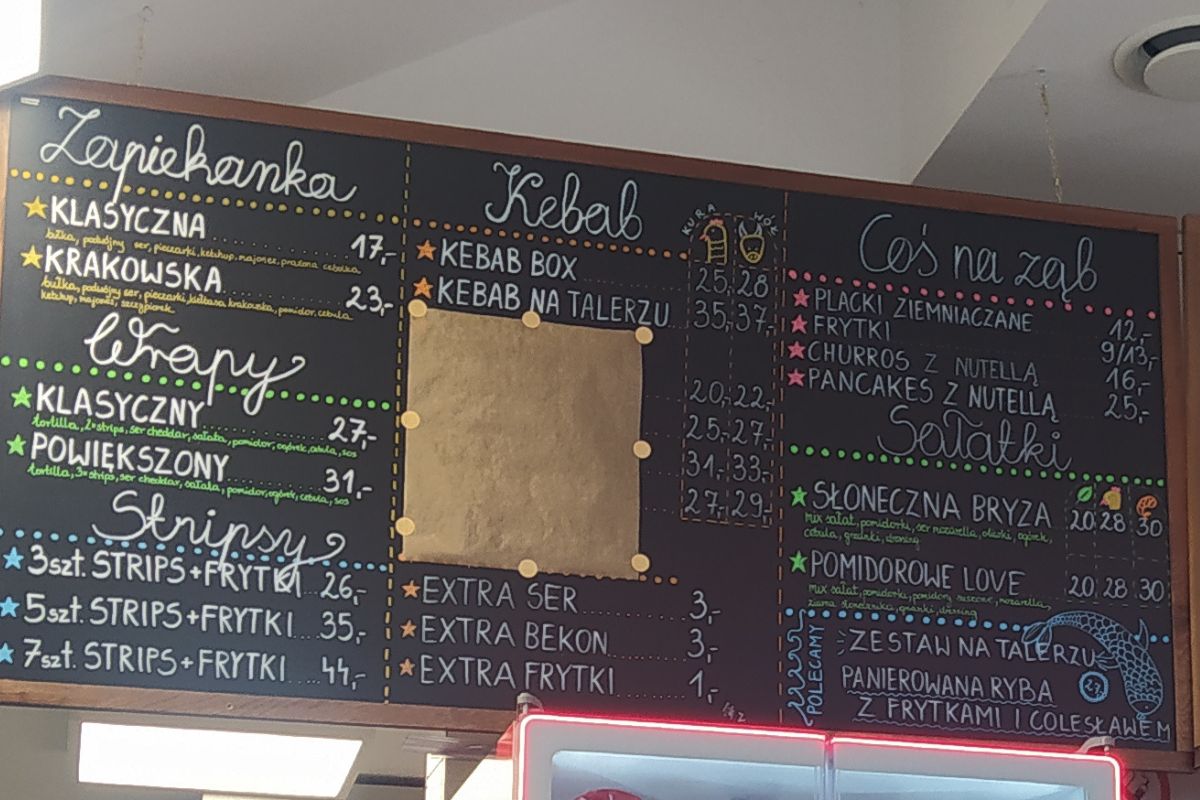 Zapiekanka
KLASYCZNA 17,-
bułka, podwójny ser, pieczarki, ketchup, majonez, prażona cebulka
KRAKOWSKA 23,-
bułka, podwójny ser, pieczarki, kiełbasa, krakowska, pomidor, cebula
ketchup, majonez, szczypiorek
Wrapy
KLASYCZNY 27,-
tortilla, 2x strips, ser cheddar, sałata, pomidor, ogórek, cebula, sos
POWIĘKSZONY 31,-
tortilla, 3x strips, ser cheddar, sałata, pomidor, ogórek, cebula, sos
Stripsy
3szt. STRIPS+FRYTKI 26,-
5szt. STRIPS+FRYTKI 35,-
7szt. STRIPS+FRYTKI 44,-
Kebab
KURA WÓŁ
KEBAB BOX 25,- 28
KEBAB NA TALERZU 35,- 37,-
20,- 22,-
25,- 27,-
31,- 33,-
27,- 29,-
EXTRA SER 3,-
EXTRA BEKON 3,-
EXTRA FRYTKI 1,-
Coś na ząb
PLACKI ZIEMNIACZANE 12,-
FRYTKI 9/13,-
CHURROS Z NUTELLĄ 16,-
PANCAKES Z NUTELLĄ 25,-
Sałatki
SŁONECZNA BRYZA 20 28 30
mix sałat, pomidorki, ser mozarella, oliwki, ogórek,
cebula, grzanki, dressing
POMIDOROWE LOVE 20 28 30
mix sałat, pomidorki, pomidory suszone, mozarella,
ziarna słonecznika, grzanki, dressing
POLECAMY
ZESTAW NA TALERZU
PANIEROWANA RYBA
Z FRYTKAMI I COLESŁAWEM